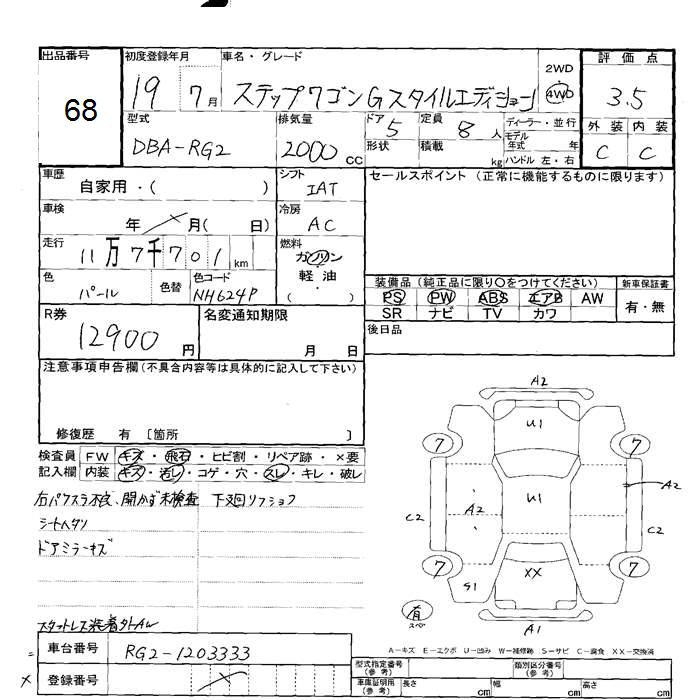 出品番号 初度登録年月 車名・グレード 2WD 評価点
68 19 7月 ステップワゴンGスタイルエディション 4WD 3.5
型式 排気量 ドア 5 定員 8人 ディーラー・並行 外装 内装
DBA-RG2 2000cc 形状 積載 kg モデル年式 年 C C
ハンドル 左・右
車歴 自家用・( ) シフト IAT セールスポイント (正常に機能するものに限ります)
車検 年 月( 日) 冷房 AC
走行 11万7千701km 燃料 ガソリン
軽油
・
( )
色 パール 色替 色コード NH624P 装備品 (純正品に限り○をつけてください) 新車保証書
PS PW ABS エアB AW 有・無
SR ナビ TV カワ
R券 12900円 名変通知期限 月 日 後日品
注意事項申告欄 (不具合内容等は具体的に記入して下さい)
修復歴 有 〔箇所 〕
検査員 FW キズ・飛石・ヒビ割・リペア跡・×要
記入欄 内装 キズ・汚レ・コゲ・穴・スレ・キレ・破レ
右パワスラ不良、開かず未検査 下廻リフション
シートヘタリ
ドアミラーキズ
スタットレス装着外AW
車台番号 RG2-1203333
登録番号
A2
U1
7 7
U1
A2 A2
C2 C2
7 7
XX
S1
有
スペ
A1
A-キズ E-エクボ U-凹み W-補修跡 S-サビ C-腐食 XX-交換済
型式指定番号 (参考) 類別区分番号 (参考)
車庫証明用 (参考) 長さ cm 幅 cm 高さ cm